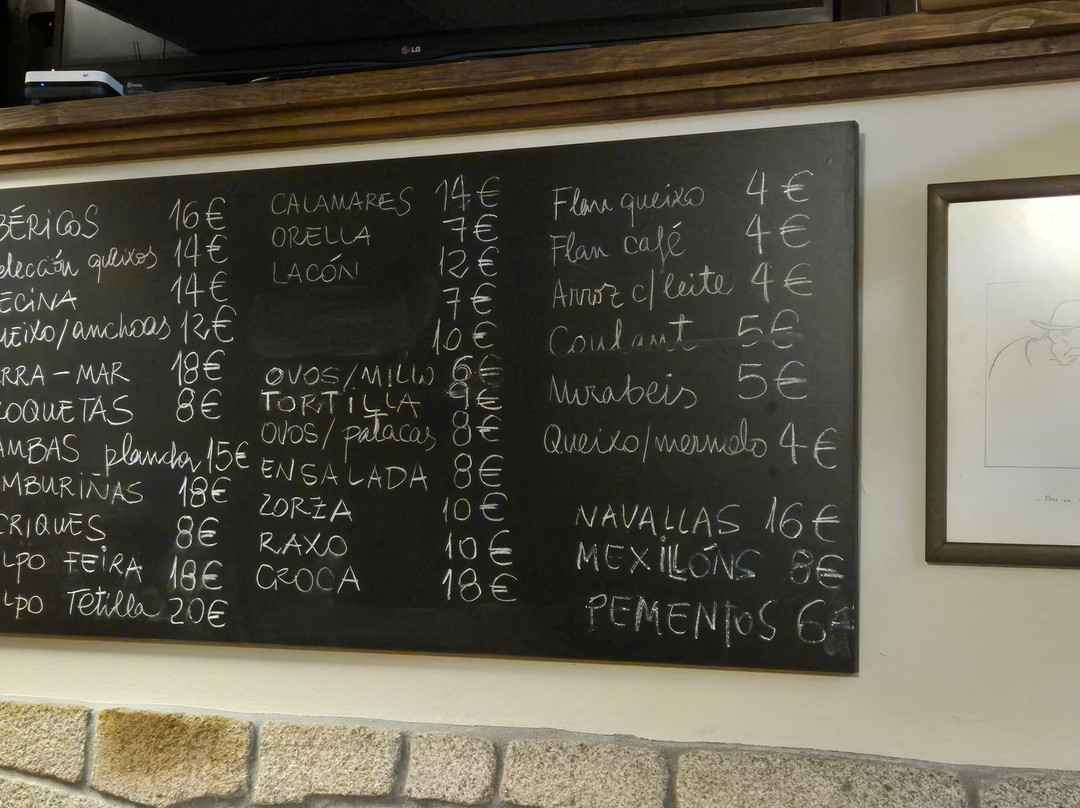 LG
BÉRICOS 16€
elección queixos 14€
ECINA 14€
UEIXO/anchoas 12€
RRA-MAR 18€
ROQUETAS 8€
AMBAS plancha 15€
MBURIÑAS 18€
CRIQUES 8€
LPO FEIRA 18€
LPO Tetilla 20€
CALAMARES 14€
ORELLA 7€
LACÓN 12€
7€
10€
OVOS/MILLO 6€
TORTILLA 9€
OVOS/patacas 8€
ENSALADA 8€
ZORZA 10€
RAXO 10€
CROCA 18€
Flan queixo 4€
Flan café 4€
Arroz c/leite 4€
Coulant 5€
Mirabeis 5€
Queixo/mermelo 4€
NAVALLAS 16€
MEXILLÓNS 8€
PEMENTOS 6